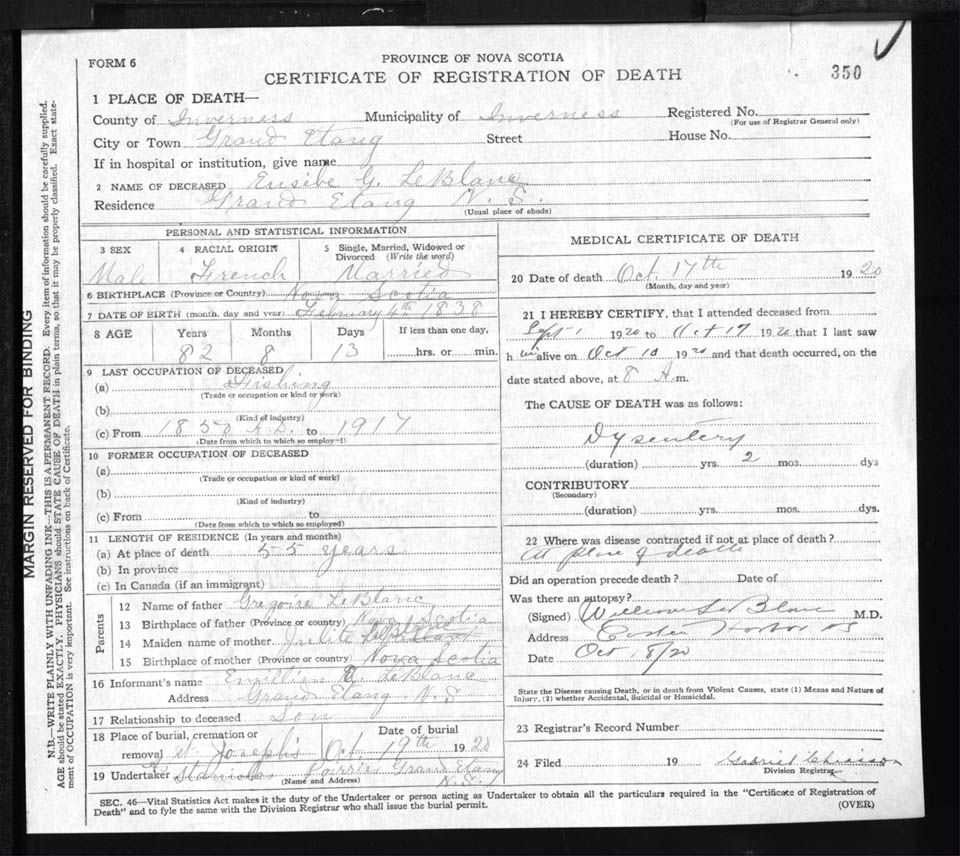 FORM 6
PROVINCE OF NOVA SCOTIA
CERTIFICATE OF REGISTRATION OF DEATH
350
1 PLACE OF DEATH—
County of Inverness Municipality of Inverness Registered No.
(For use of Registrar General only)
City or Town Grand Etang Street House No.
If in hospital or institution, give name
2 NAME OF DECEASED Eusibe G. LeBlanc
Residence Grand Etang N. S.
(Usual place of abode)
PERSONAL AND STATISTICAL INFORMATION
3 SEX 4 RACIAL ORIGIN 5 Single, Married, Widowed or Divorced (Write the word)
Male French Married
6 BIRTHPLACE (Province or Country) Nova Scotia
7 DATE OF BIRTH (month, day and year) February 4th 1838
8 AGE Years Months Days If less than one day,
82 8 13 hrs. or min.
9 LAST OCCUPATION OF DECEASED
(a) Fishing
(Trade or occupation or kind or work)
(b)
(Kind of industry)
(c) From 1850 A.D. to 1917
(Date from which to which so employed)
10 FORMER OCCUPATION OF DECEASED
(a)
(Trade or occupation or kind of work)
(b)
(Kind of industry)
(c) From to
(Date from which to which so employed)
11 LENGTH OF RESIDENCE (In years and months)
(a) At place of death 55 years
(b) In province
(c) In Canada (if an immigrant)
Parents
12 Name of father Gregoire LeBlanc
13 Birthplace of father (Province or country) Nova Scotia
14 Maiden name of mother
15 Birthplace of mother (Province or country) Nova Scotia
16 Informant's name LeBlanc
Address Grand Etang N. S
17 Relationship to deceased Son
18 Place of burial, cremation or removal St. Joseph's
Date of burial
Oct 19th 1920
19 Undertaker Stanislas Poirrier Grand Etang
(Name and Address) N. S.
MEDICAL CERTIFICATE OF DEATH
20 Date of death Oct. 17th 1920
(Month, day and year)
21 I HEREBY CERTIFY, that I attended deceased from
Sept 1 1920 to Oct 17 1920 that I last saw
him alive on Oct 10 1920 and that death occurred, on the
date stated above, at 8 A.m.
The CAUSE OF DEATH was as follows:
Dysentery
(duration) yrs. 2 mos. dys
CONTRIBUTORY
(Secondary)
(duration) yrs. mos. dys.
22 Where was disease contracted if not at place of death?
At place of death
Did an operation precede death? Date of
Was there an autopsy?
(Signed) William LeBlanc M.D.
Address Harbor NS
Date Oct 18/20
State the Disease causing Death, or in death from Violent Causes, state (1) Means and Nature of
Injury, (2) whether Accidental, Suicidal or Homicidal.
23 Registrar's Record Number
24 Filed 19 Gabriel Chiasson
Division Registrar
SEC. 46—Vital Statistics Act makes it the duty of the Undertaker or person acting as Undertaker to obtain all the particulars required in the "Certificate of Registration of
Death" and to fyle the same with the Division Registrar who shall issue the burial permit.
(OVER)
MARGIN RESERVED FOR BINDING
N.B.—WRITE PLAINLY WITH UNFADING INK—THIS IS A PERMANENT RECORD. Every item of information should be carefully supplied.
AGE should be stated EXACTLY. PHYSICIANS should STATE CAUSE OF DEATH in plain terms, so that it may be properly classified. Exact state-
ment of OCCUPATION is very important. See instructions on back of Certificate.